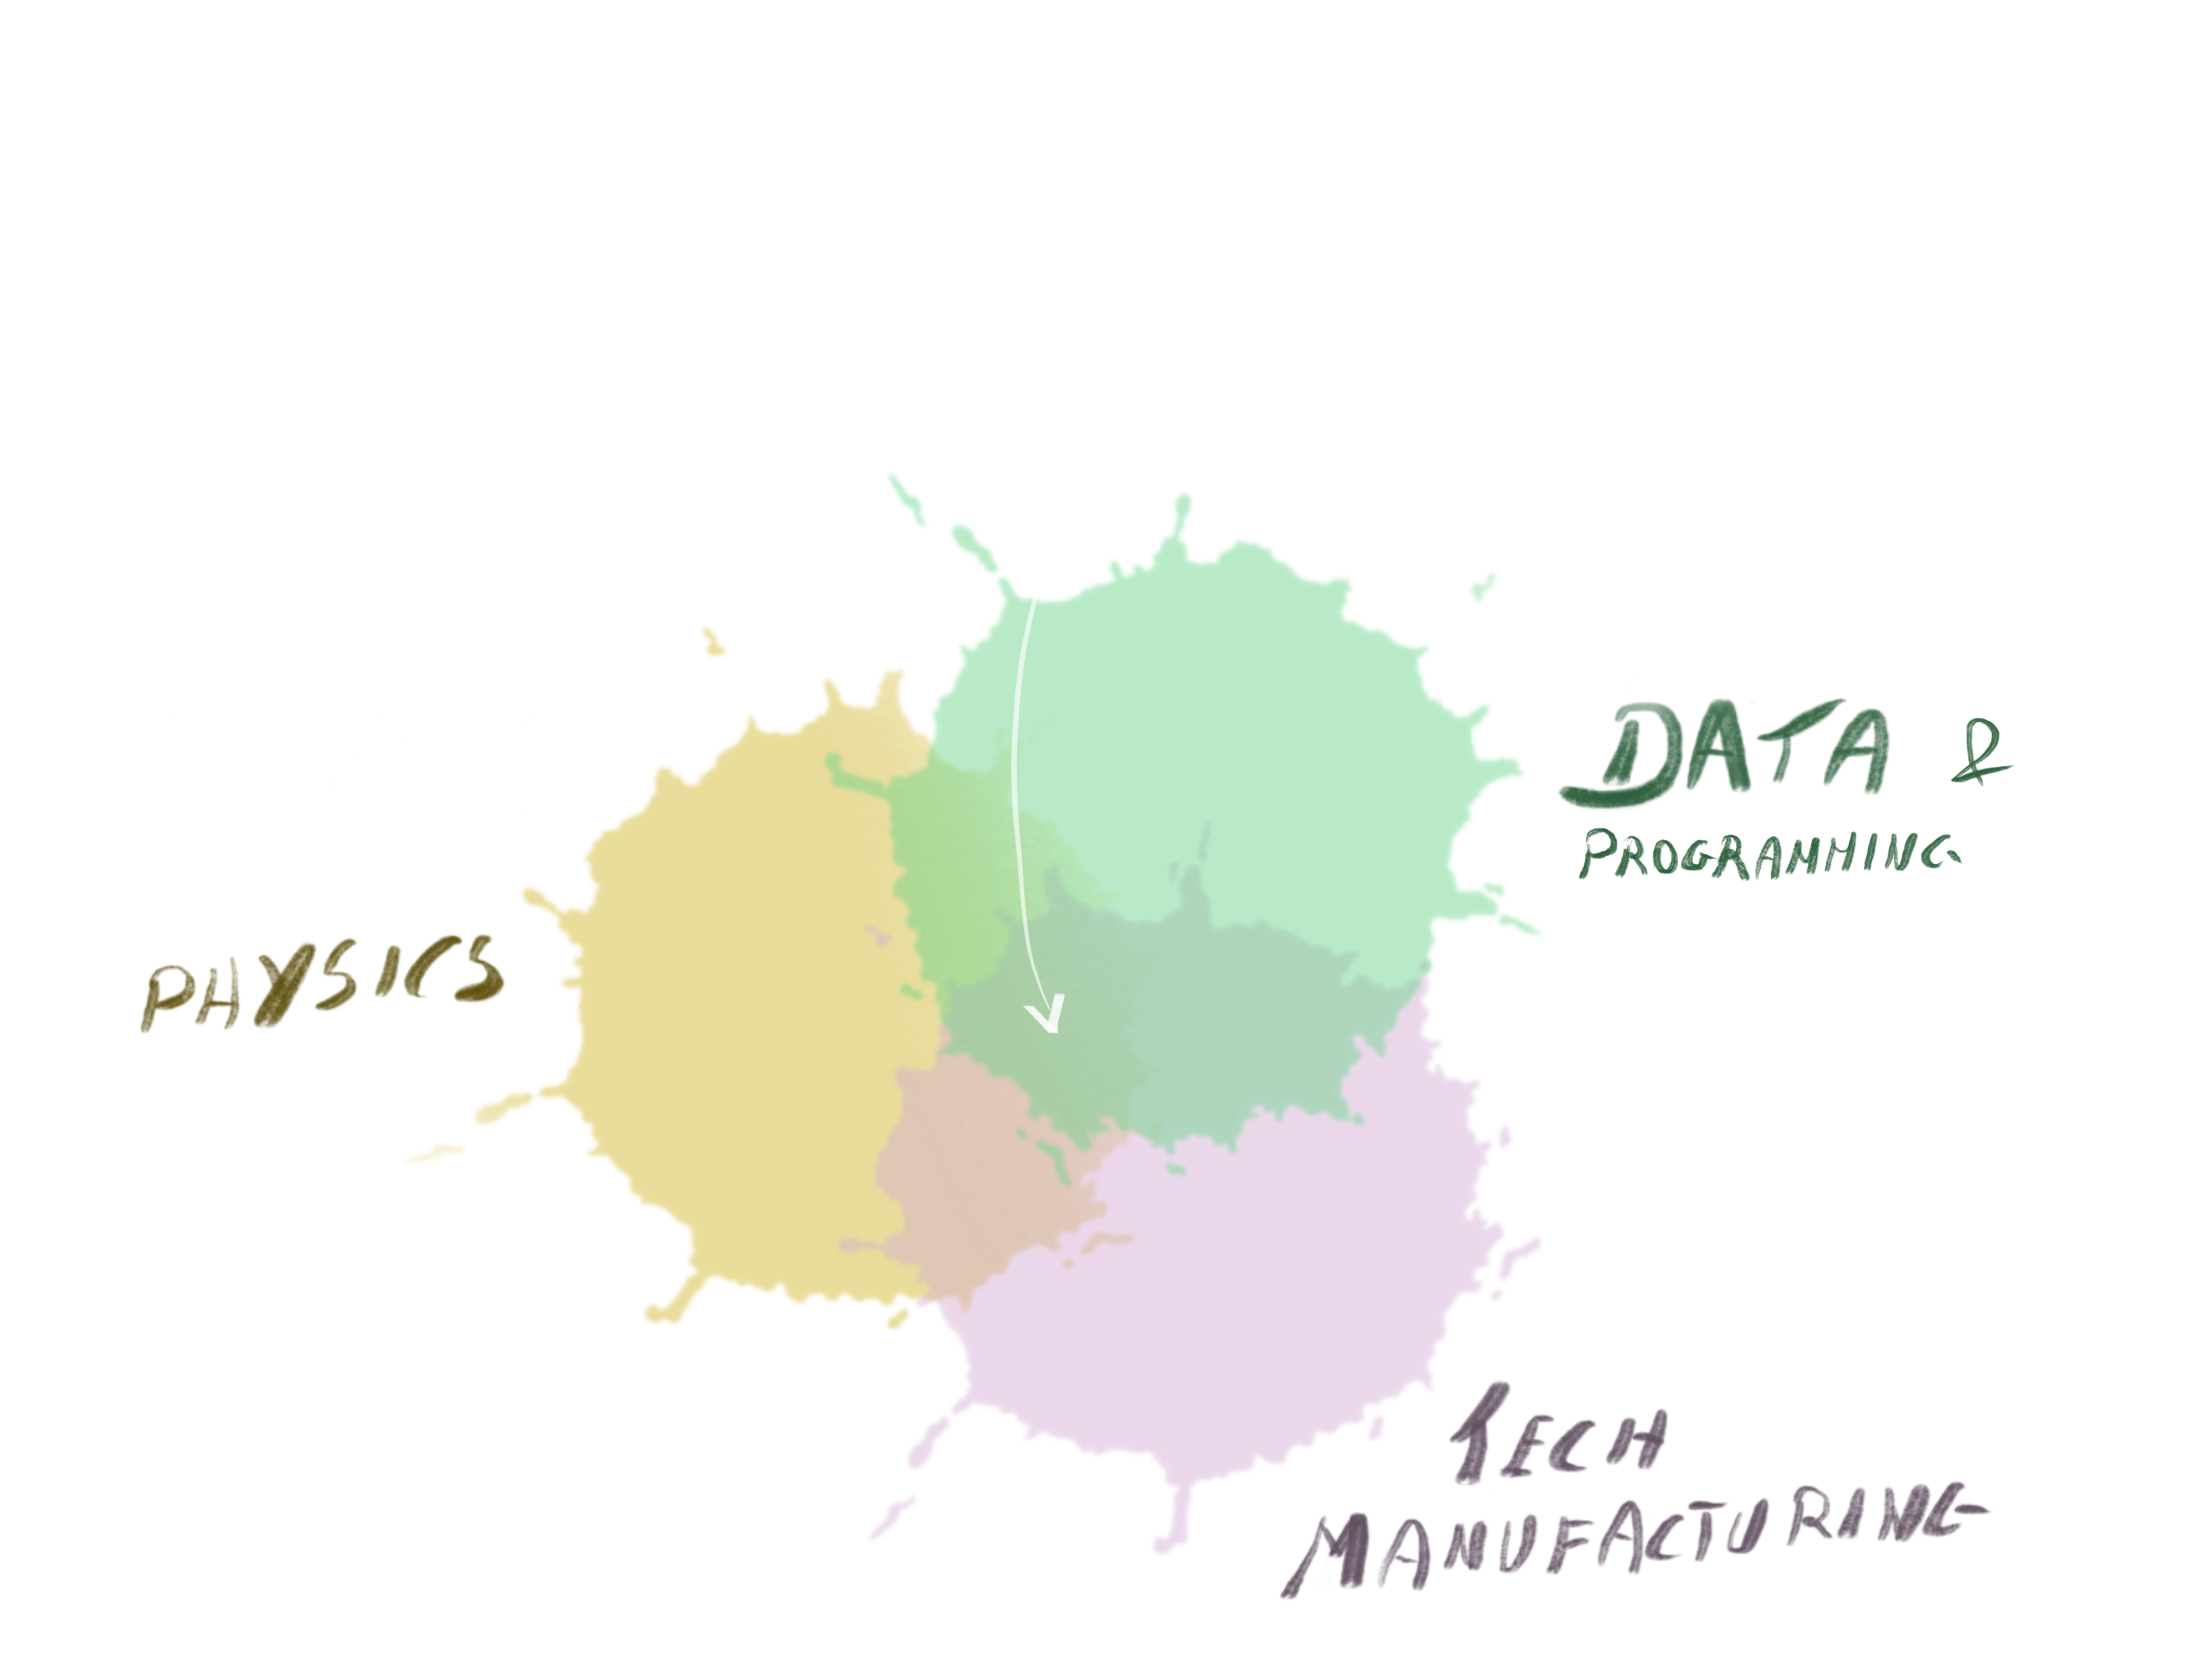 DATA &
PROGRAMMING
PHYSICS
TECH
MANUFACTURING